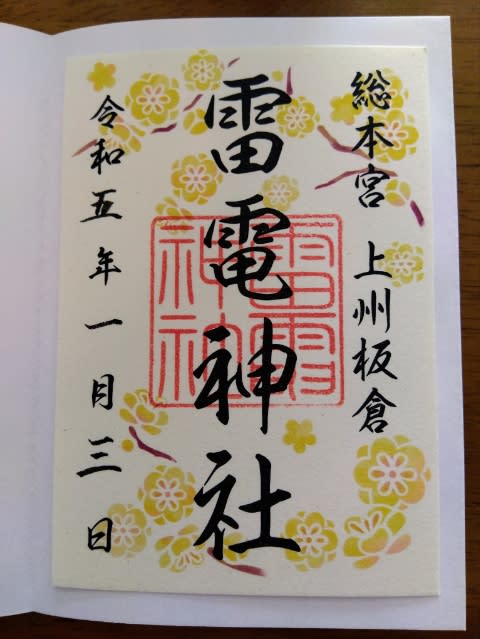 総本宮 上州板倉
雷電神社
令和五年一月三日
雷電神社